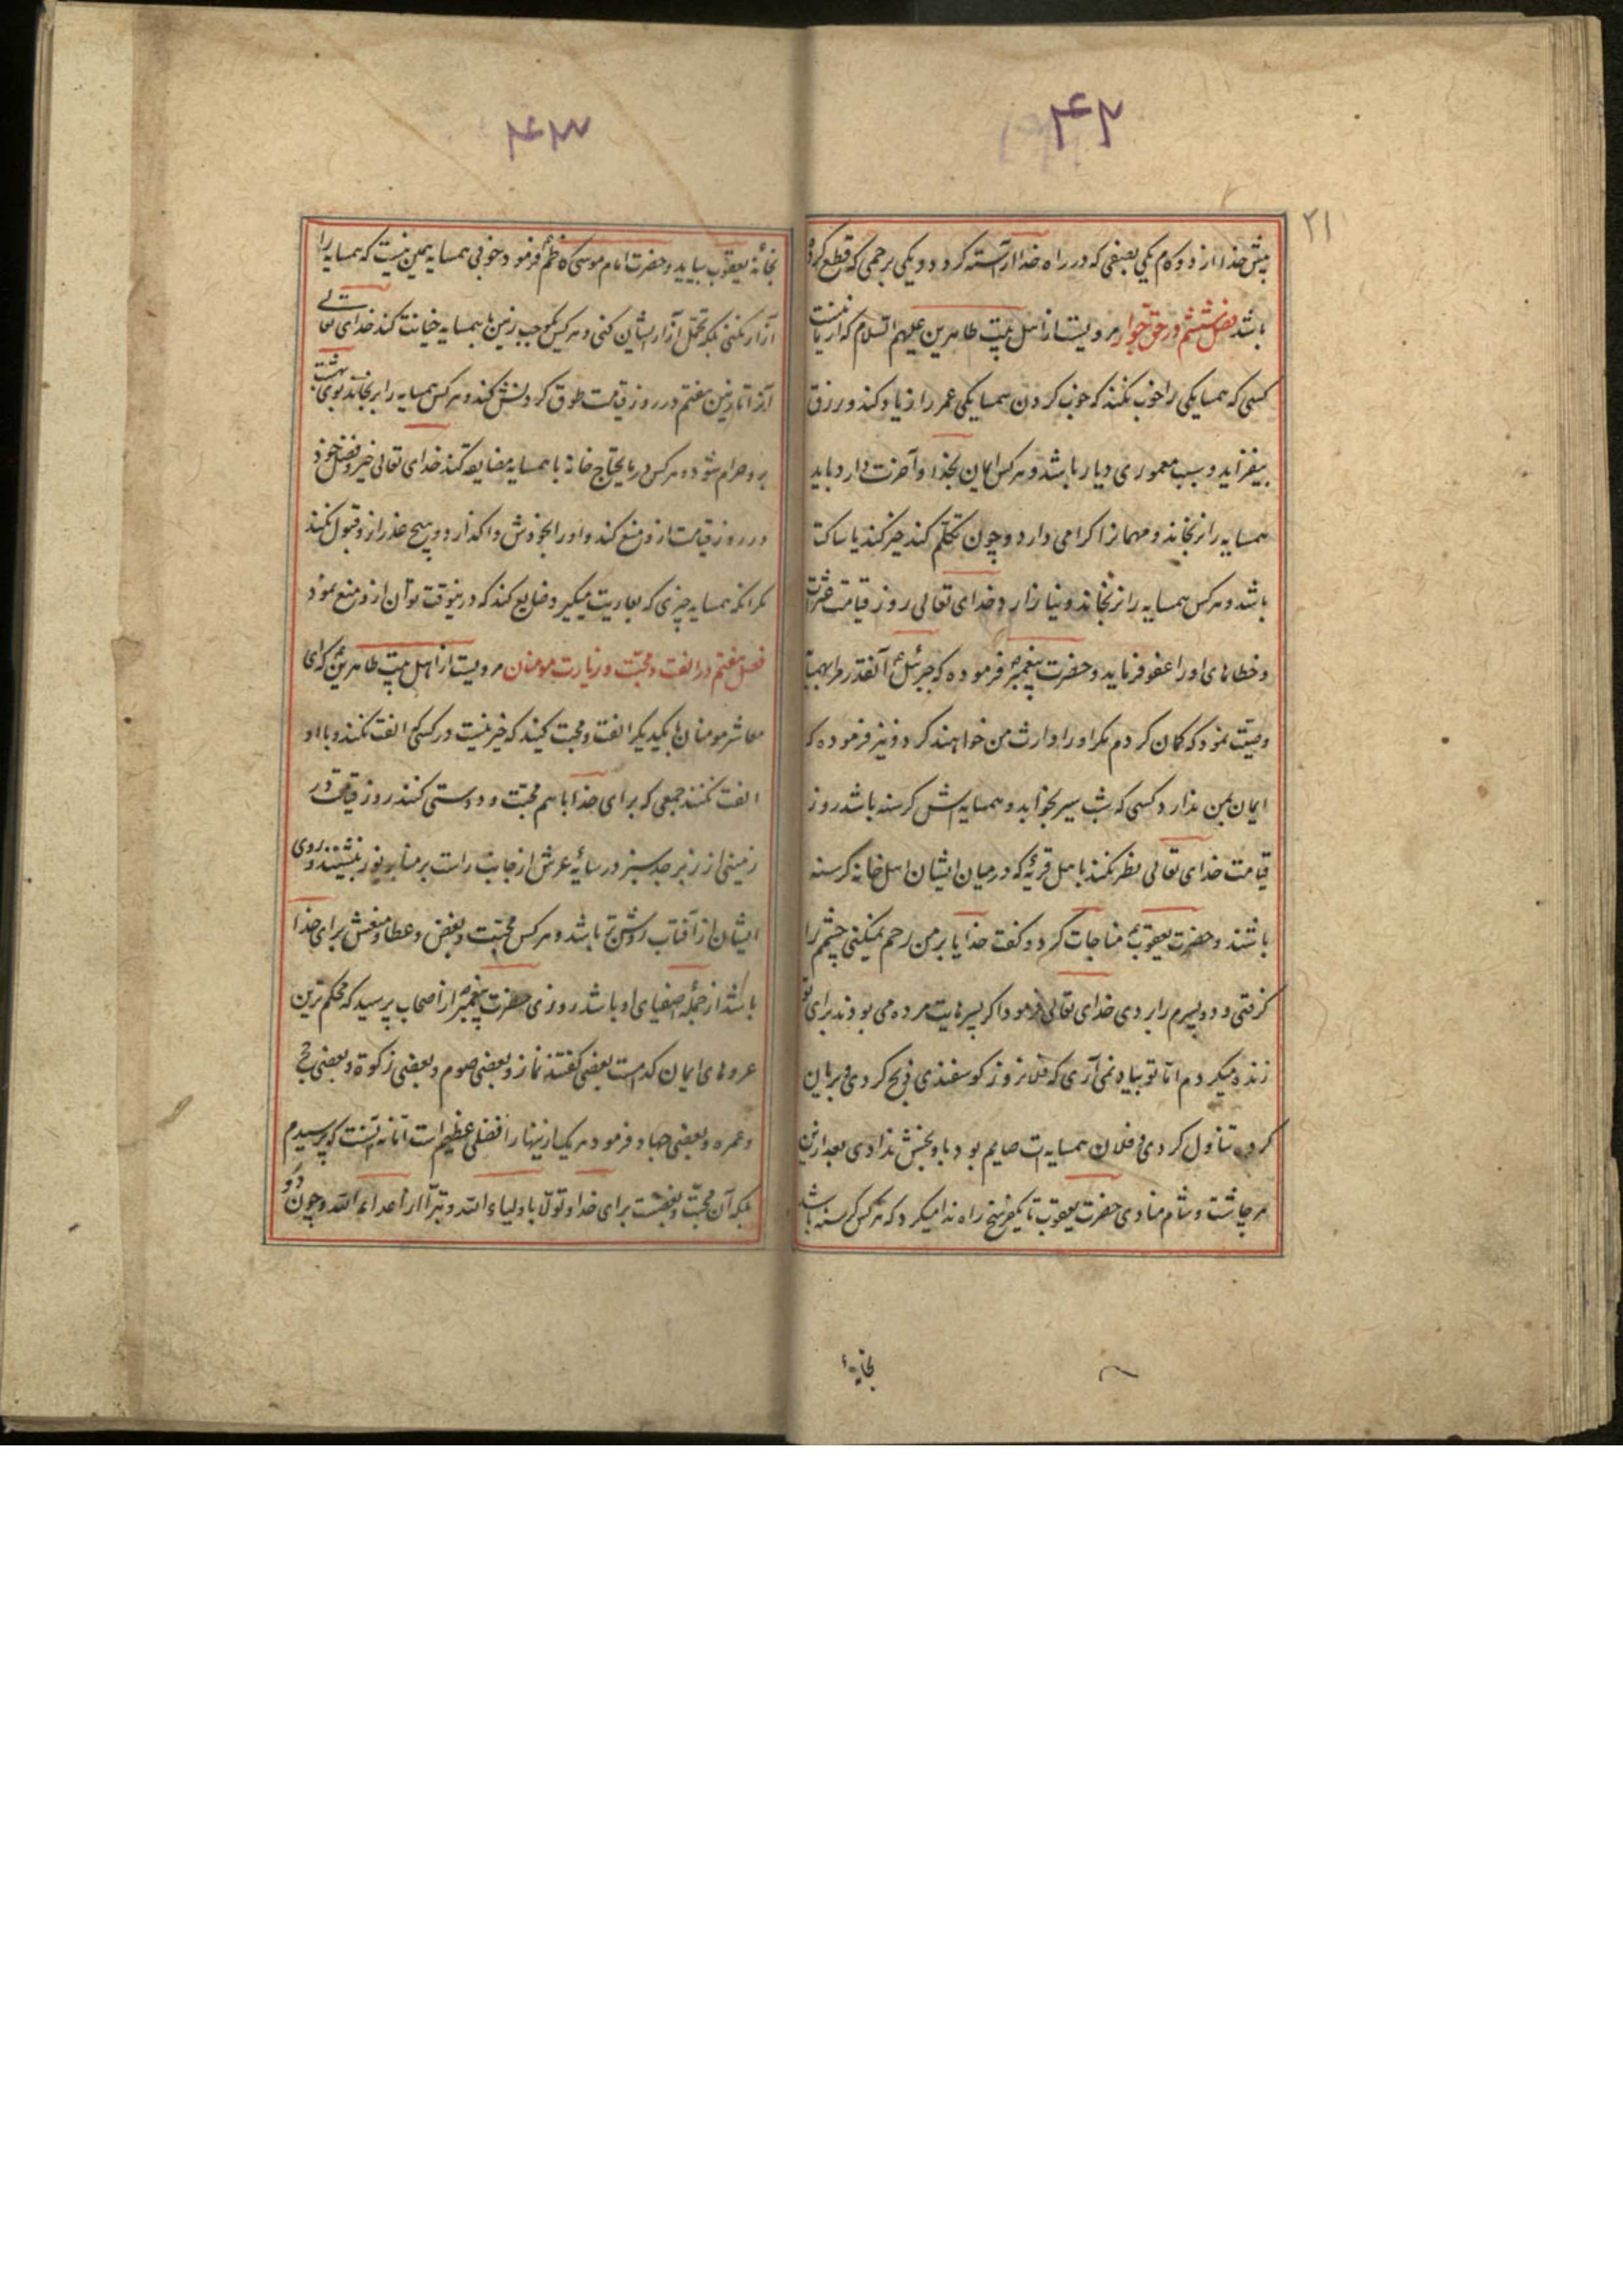 ۴۲
۲۱
پیش خدا از دو کام یکی بصفی که در راه خدا آراسته کردد و یکی برحمی که قطع کرده
باشد فصل ششم در حق جوار مرویست از اهل بیت طاهرین علیهم السلام که از ما نیست
کسی که همسایکی را خوب نکند که خوب کردن همسایکی عمر را زیاد کند و رزق
بیفزاید و سبب معموری دیار باشد و هر کس ایمان بخدا و آخرت دارد باید
همسایه را نرنجاند و مهمانرا کرامی دارد و چون تکلم کند خیر کند یا ساکت
باشد و هر کس همسایه را نرنجاند و نیازارد خدای تعالی روز قیامت عثرات
و خطاهای او را عفو فرماید و حضرت پیغمبر ص فرموده که جبرئیل ع آنقدر مرا بهمسایه
وصیت نمود که کمان کردم مکر او را وارث من خواهند کرد و نیز فرموده که
ایمان بمن ندارد کسی که شب سیر بخوابد و همسایه‌اش کرسنه باشد روز
قیامت خدای تعالی نظر نکند باهل قریهٔ که در میان ایشان اهل خانه کرسنه
باشند و حضرت یعقوب ع مناجات کرد و کفت خدایا بر من رحم نمیکنی چشمم را
کرفتی و دو پسرم را بردی خدای تعالی فرمود اکر پسرهایت مرده می بودند برای تو
زنده میکردم اما تو بیاد نمی‌آری که فلانروز کوسفندی ذبح کردی و بریان
کرده تناول کردی و فلان همسایه‌ات صایم بود باو بخش ندادی بعد ازین
هر چاشت و شام منادی حضرت یعقوب تا یکفرسخ راه ندا میکرد که هر کس کرسنه باشد
بخانهٔ
۴۳
بخانهٔ یعقوب بیاید و حضرت امام موسی کاظم ع فرمود خوبی همسایه همین نیست که همسایه را
آزار نکنی بلکه تحمل آزار ایشان کنی و هر کس بموجب زمین با همسایه خیانت کند خدای تعالی
آنرا تا زمین هفتم در روز قیامت طوق کردنش کند و هر کس همسایه را برنجاند بوی بهشت
برو حرام شود و هر کس در مایحتاج خانه با همسایه مضایقه کند خدای تعالی خیر و فضل خود
در روز قیامت ازو منع کند و او را بخودش واکذارد و هیچ عذر ازو قبول نکند
مکر آنکه همسایه چیزی که بعاریت میکیرد ضایع کند که درینوقت توان ازو منع نمود
فصل هفتم در الفت و محبت و زیارت مومنان مرویست از اهل بیت طاهرین ع که ای
معاشر مومنان با یکدیکر الفت و محبت کنید که خیر نیست در کسی که الفت نکند و با او
الفت نکنند جمعی که برای خدا با هم محبت و دوستی کنند روز قیامت در
زمینی از زبرجد سبز در سایهٔ عرش از جانب راست بر منابر نور بنشینند و روی
ایشان از آفتاب روشن‌تر باشد و هر کس محبت و بغض و عطا و منعش برای خدا
باشد از جملهٔ اصفیای او باشد روزی حضرت پیغمبر ص از اصحاب پرسید که محکم ترین
عروهای ایمان کدامست بعضی کفتند نماز و بعضی صوم و بعضی زکوة و بعضی حج
و عمره و بعضی جهاد فرمود هر یک ازینها را فضلی عظیم است اما نه آنست که پرسیدم
بلکه آن محبت و بغضست برای خدا و تولا باولیاء الله و تبرا از اعداء الله و چون دو